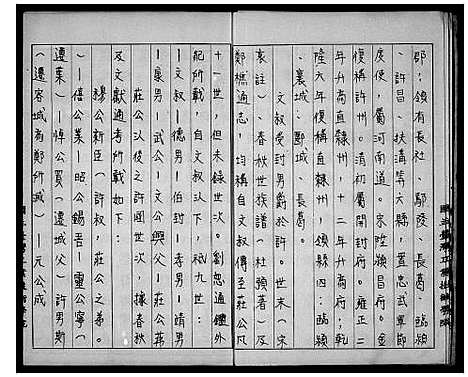 郡；領有長社、鄢陵、長葛、臨潁
、許昌、扶溝等六縣，置忠武軍節
度使，屬河南道。宋陞潁昌府。金
復稱許州。清初屬開封府。雍正二
年升為直隸州，十二年升為府；乾
隆六年復稱直隸州，領縣四：臨潁
、襄城、郾城、長葛。
文叔受封男爵於許。宋忠（世本
衷註）、春秋世族譜（杜預著）及
鄭樵通志，均稱自文叔傳至莊公凡
十一世，但未錄世次。劉恕通鑑外
紀所載，自文叔以下，祗九世：
｜文叔｜德男｜伯封｜孝男｜靖男
｜康男｜武公｜文公興父｜莊公茀
莊公以後之許國世次，據春秋
及文獻通考所載如下：
穆公新臣（許叔，莊公之弟。
）｜僖公業｜昭公錫吾｜靈公寧（
遷葉）｜悼公買（遷城父）許男斯
（遷容城為鄭所滅）｜元公成